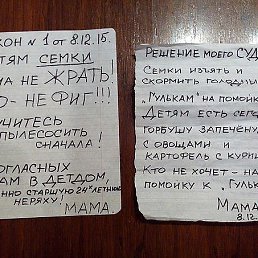 КОН N 1 от 8.12.15.
ТЯМ СЕМКИ
НЕ ЖРАТЬ!
О - НЕ ФИГ!!!
УЧИТЕСЬ
ПЫЛЕСОСИТЬ
СНАЧАЛА!
ОГЛАСНЫХ
АМ В ДЕТДОМ,
ННО СТАРШУЮ 24"ЛЕТНЮЮ
НЕРЯХУ!
МАМА.
РЕШЕНИЕ МОЕГО СУД
СЕМКИ ИЗЪЯТЬ И
СКОРМИТЬ ГОЛОДНЫ
"ГУЛЬКАМ" НА ПОМОЙК
ДЕТЯМ ЕСТЬ СЕГО
ГОРБУШУ ЗАПЕЧЁНУ
С ОВОЩАМИ И
КАРТОФЕЛЬ С КУРИЦ
КТО НЕ ХОЧЕТ - НА
ПОМОЙКУ К "ГУЛЬК
МАМА
8.12.